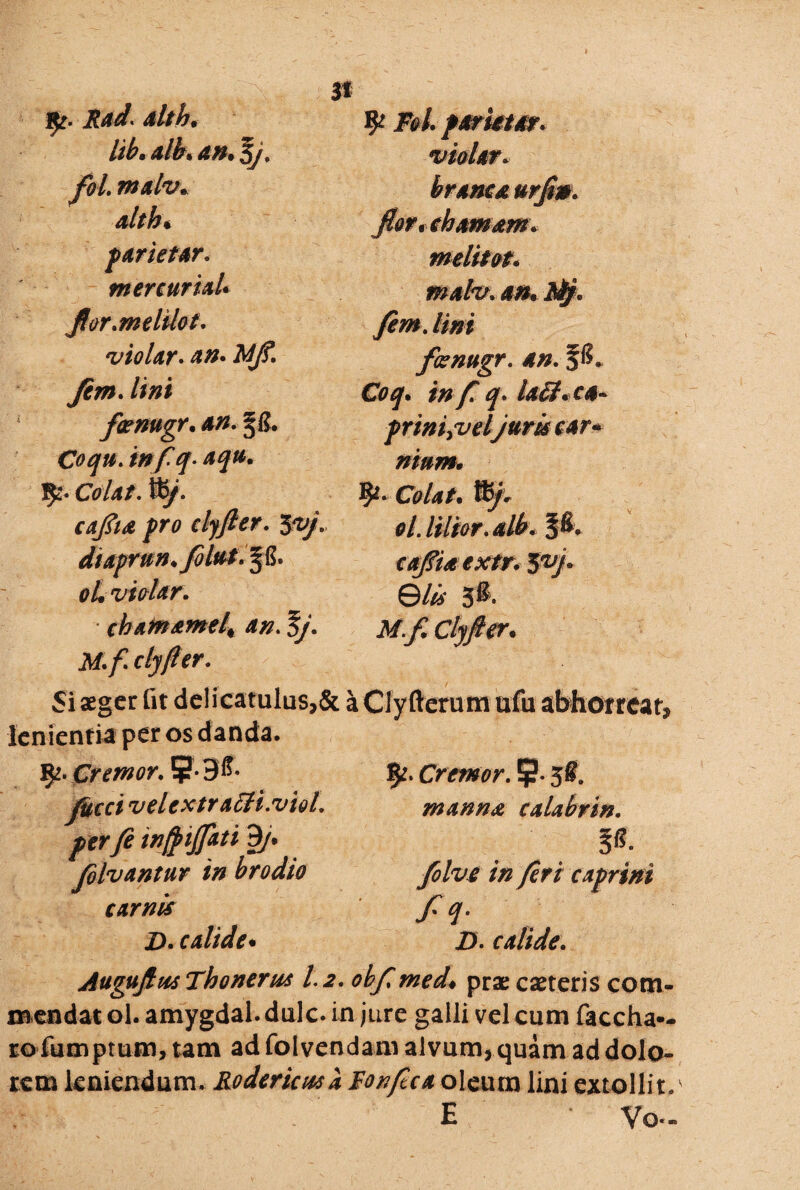 31
℞. Rad. alth.
lib. alb. an. ℥j.
fol. malv.
alth.
parietar.
mercurial.
flor. melilot.
violar. an. Mß.
ſem. lini
fœnugr. an. ℥ß.
Coqu. in ſ. q. aqu.
℞. Colat. ℔j.
caſſiæ pro clyſter. ʒvj.
diaprun. ſolut. ℥ß.
ol. violar.
chamæmel. an. ℥j.
M. f. clyſter.
℞ Fol. parietar.
violar.
brancæ urſin.
flor. chamæm.
melitot.
malv. an. Mj.
ſem. lini
fœnugr. an. ℥ß.
Coq. in ſ. q. lact. ca-
prini, vel juris car-
nium.
℞. Colat. ℔j.
ol. lilior. alb. ℥ß.
caſſiæ extr. ʒvj.
🜔lis ʒß.
M. f. Clyſter.
Si æger ſit delicatulus, & à Clyſterum uſu abhorreat,
lenientia per os danda.
℞. Cremor. 🜿. ℈ß.
ſucci vel extracti. viol.
per ſe inſpiſſati ℈j.
ſolvantur in brodio
carnis
D. calide.
℞. Cremor. 🜿. ʒß.
mannæ calabrin.
℥ß.
ſolve in ſeri caprini
ſ. q.
D. calide.
Auguſtus Thonerus l. 2. obſ. med. præ cæteris com-
mendat ol. amygdal. dulc. in jure galli vel cum ſaccha-
ro ſumptum, tam ad ſolvendam alvum, quàm ad dolo-
rem leniendum. Rodericus à Fonſeca oleum lini extollit.
E Vo-